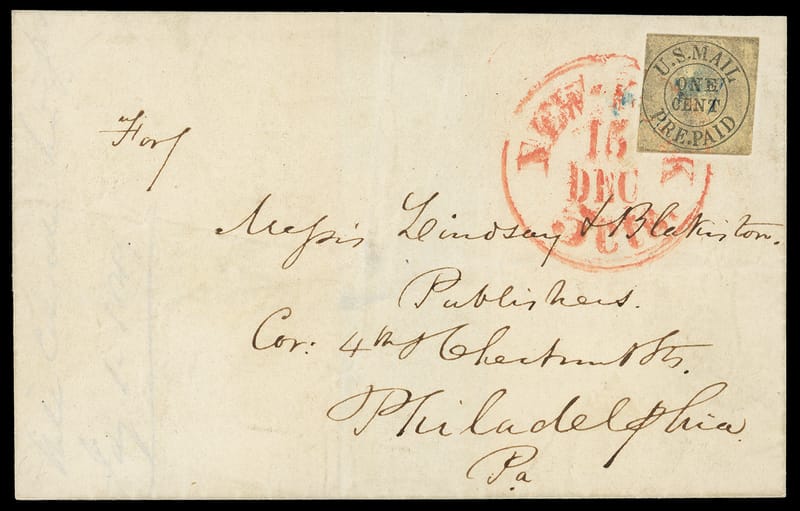 U.S. MAIL
ONE
CENT
PRE.PAID
NEW YORK
15
DEC
5 cts
For/
Messrs Lindsay & Blakiston.
Publishers.
Cor: 4th & Chestnut Sts.
Philadelphia
Pa